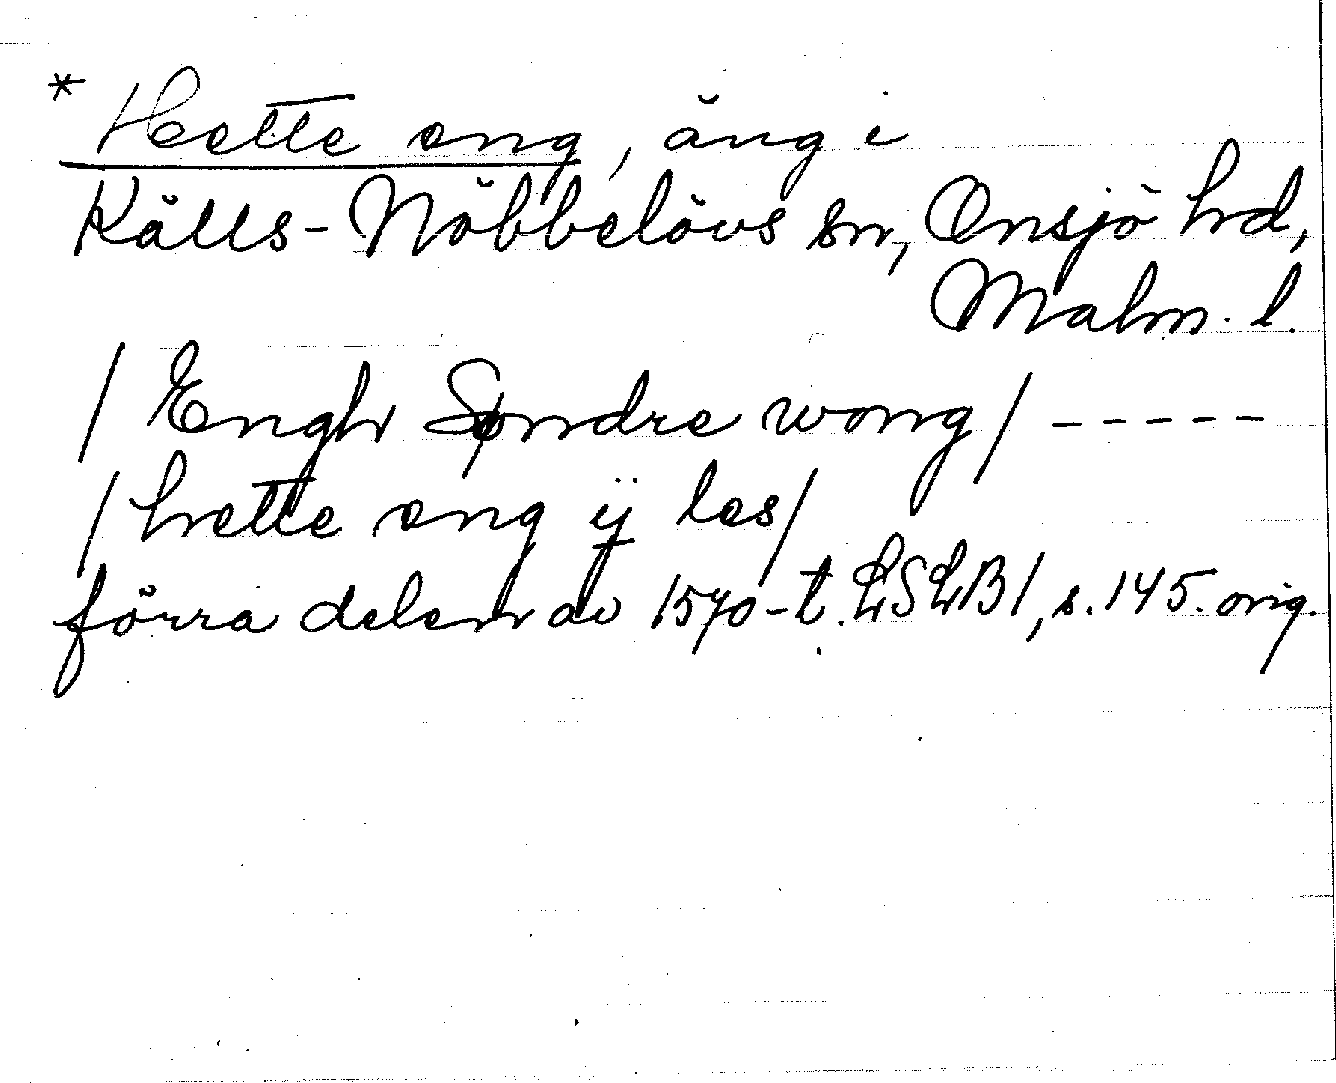 * Hette eng, äng i
Källs-Nöbbelövs sn, Onsjö hd,
Malm. l.
/ Engh Søndre wong / -----
/ hette eng ij les /
förra delen av 1570-t. LSLB1, s. 145. orig.